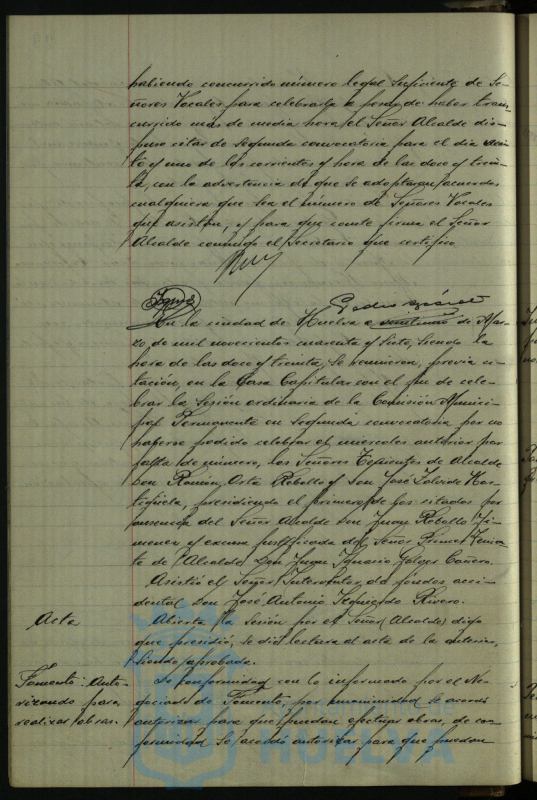 habiendo concurrido número legal suficiente de Se-
ñores Vocales para celebrarla a pesar de haber trans-
currido más de media hora, el Señor Alcalde dis-
puso citar de segunda convocatoria para el día vein-
te y uno de los corrientes y hora de las doce y trein-
ta, con la advertencia de que se adoptaran acuerdos
cualquiera que sea el número de Señores Vocales
que asistan, y para que conste firma el Señor
Alcalde conmigo el Secretario que certifico
En la ciudad de Huelva a veintiuno de Mar-
zo de mil novecientos cuarenta y siete, siendo la
hora de las doce y treinta, se reunieron, previa ci-
tación, en la Casa Capitular con el fin de cele-
brar la sesión ordinaria de la Comisión Munici-
pal Permanente en segunda convocatoria por no
haberse podido celebrar el miercoles anterior por
falta de número, los Señores Tenientes de Alcalde
Don Román Orta Rebollo y Don José
presidiendo el primero de los citados por
ausencia del Señor Alcalde Don Juan Rebollo Ji-
menez y excusa justificada del Señor Primer Tenien-
te de Alcalde Don Juan Ignacio Gálvez Cañero.
Asistió el Señor Interventor de fondos acci-
dental Don José Antonio Izquierdo Rivero.
Acta
Abierta la sesión por el Señor Alcalde dijo
que presidió, se dió lectura al acta de la anterior,
siendo aprobada.
Fomento: Auto-
rizando para
realizar obras.
De conformidad con lo informado por el Ne-
gociado de Fomento, por unanimidad se acordó
autorizar para que puedan efectuar obras, de con-
formidad se acordó autorizar para que puedan
HUELVA